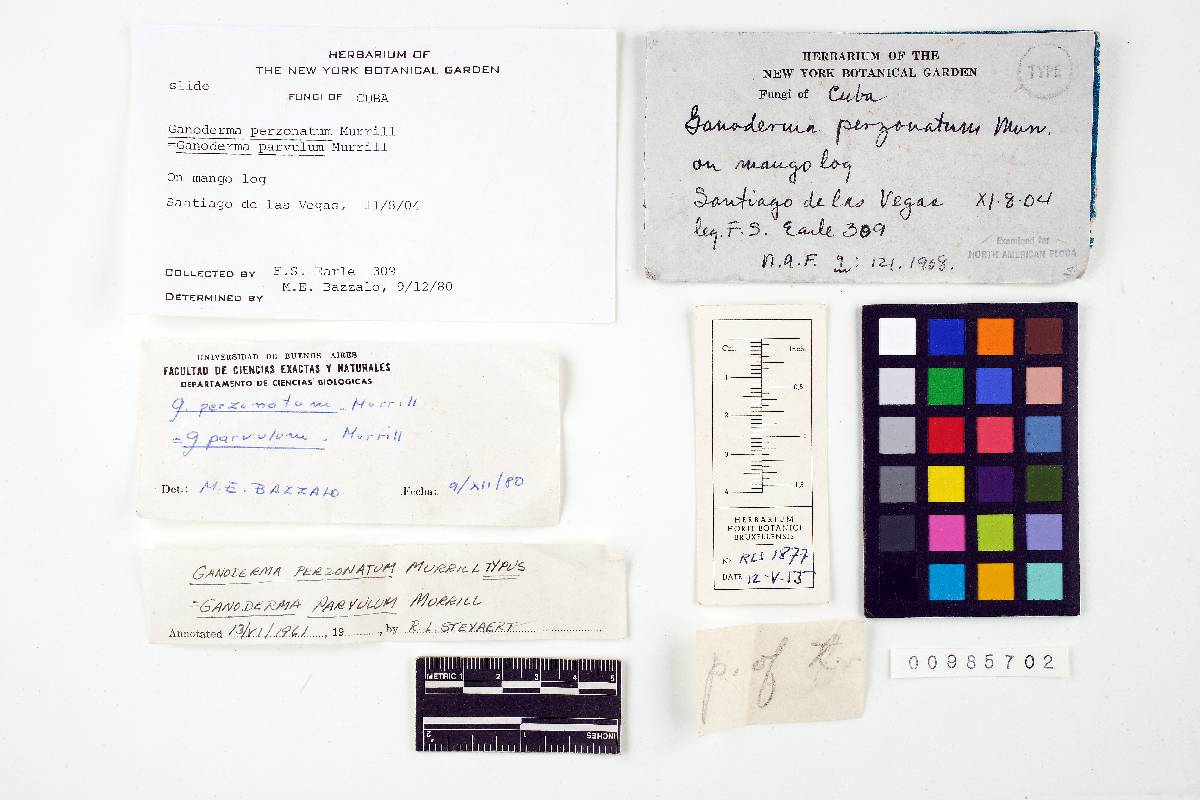 HERBARIUM OF
THE NEW YORK BOTANICAL GARDEN
slide
FUNGI OF CUBA
Ganoderma perzonatum Murrill
=Ganoderma parvulum Murrill
On mango log
Santiago de las Vegas, 11/8/04
COLLECTED BY F.S. Earle 309
M.E. Bazzalo, 9/12/80
DETERMINED BY
HERBARIUM OF THE
NEW YORK BOTANICAL GARDEN
TYPE
Fungi of Cuba
Ganoderma perzonatum Murr.
on mango log
Santiago de las Vegas XI-8-04
leg. F.S. Earle 309
Examined for
NORTH AMERICAN FLORA
N.A.F. 9: 121. 1908.
UNIVERSIDAD DE BUENOS AIRES
FACULTAD DE CIENCIAS EXACTAS Y NATURALES
DEPARTAMENTO DE CIENCIAS BIOLOGICAS
G. perzonatum. Murrill
= G parvulum. Murrill
Det.: M.E. BAZZALO Fecha: 9/XII/80
GANODERMA PERZONATUM MURRILL TYPUS
=GANODERMA PARVULUM MURRILL
Annotated 13/VI/1961, 19, by R.L. STEYAERT
Cm. Inch.
1 0,5
2
3 1
4 1,5
HERBARIUM
HORTI BOTANICI
BRUXELLENSIS
No RLS 1877
DATE 12-V-
p. of
00985702
METRIC 1 2 3 4 5
2 1 INCHES